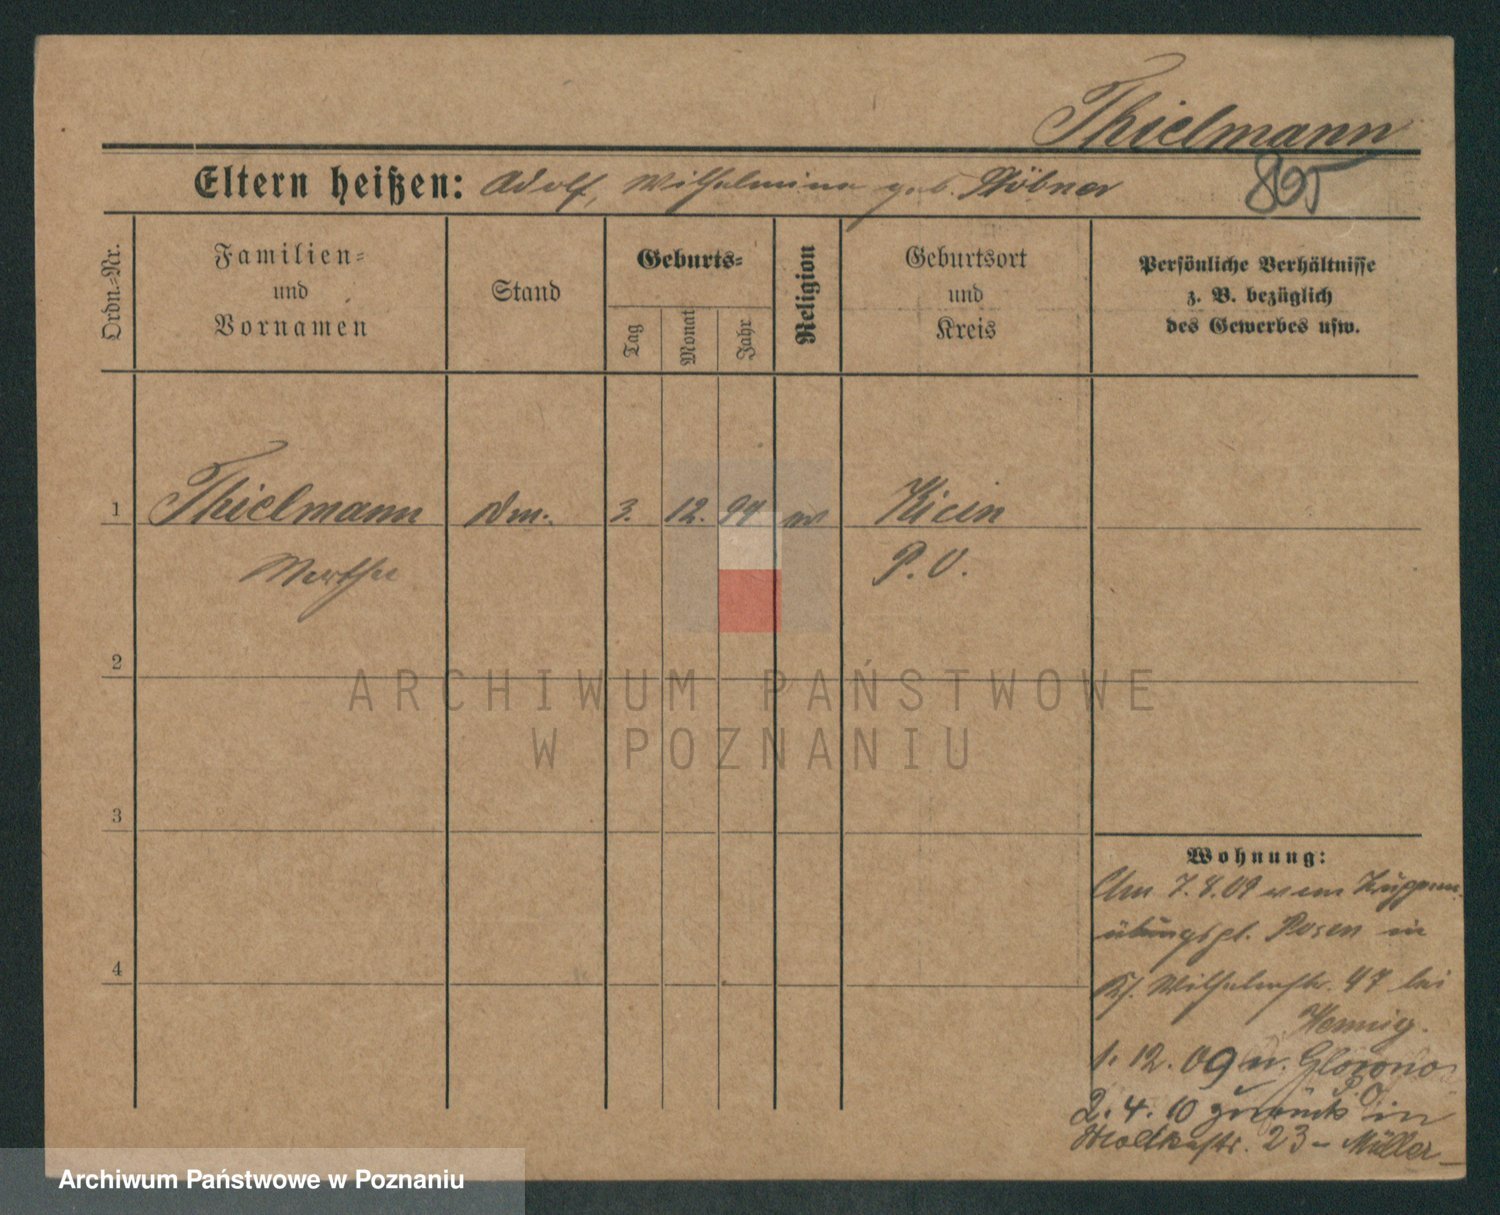 Thielmann
805
Eltern heißen: Adolf, Wilhelmine geb. Hübner
Ordn.-Nr.
Familien-
und
Vornamen
Stand
Geburts-
Tag
Monat
Jahr
Religion
Geburtsort
und
Kreis
Persönliche Verhältnisse
z. B. bezüglich
des Gewerbes usw.
1
Thielmann
3. 12. 94
Kicin
Martha
P. O.
2
3
4
Wohnung:
Am 7.8.09 vom Truppen
übungspl. Posen in
Wilhelmstr. 47 bei
Hennig.
1. 12. 09 n. Glowno
P. O.
2. 4. 10 zurück in
23 - Müller
ARCHIWUM PAŃSTWOWE
W POZNANIU
Archiwum Państwowe w Poznaniu